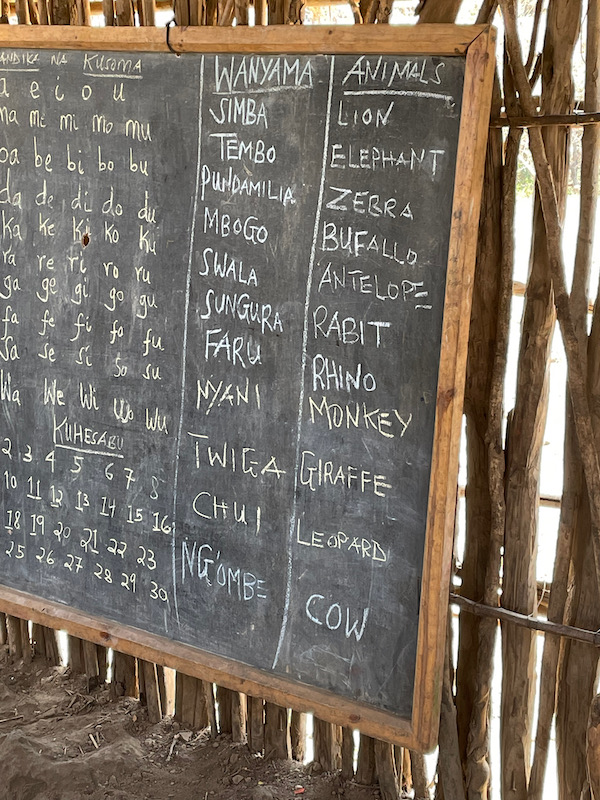 ANDIKA NA KUSOMA
a e i o u
ma mi mi mo mu
ba be bi bo bu
da de di do du
ka ke ki ko ku
ra re ri ro ru
ga ge gi go gu
fa fe fi fo fu
sa se si so su
Wa We Wi Wo Wu
KUHESABU
2 3 4 5 6 7 8
10 11 12 13 14 15 16
18 19 20 21 22 23
25 26 27 28 29 30
WANYAMA
SIMBA
TEMBO
PUNDAMILIA
MBOGO
SWALA
SUNGURA
FARU
NYANI
TWIGA
CHUI
NG'OMBE
ANIMALS
LION
ELEPHANT
ZEBRA
BUFALLO
ANTELOPE
RABIT
RHINO
MONKEY
GIRAFFE
LEOPARD
COW